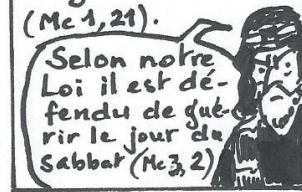 (Mc 1, 21).
Selon notre
Loi il est dé-
fendu de gué-
rir le jour du
sabbat (Mc 3, 2)